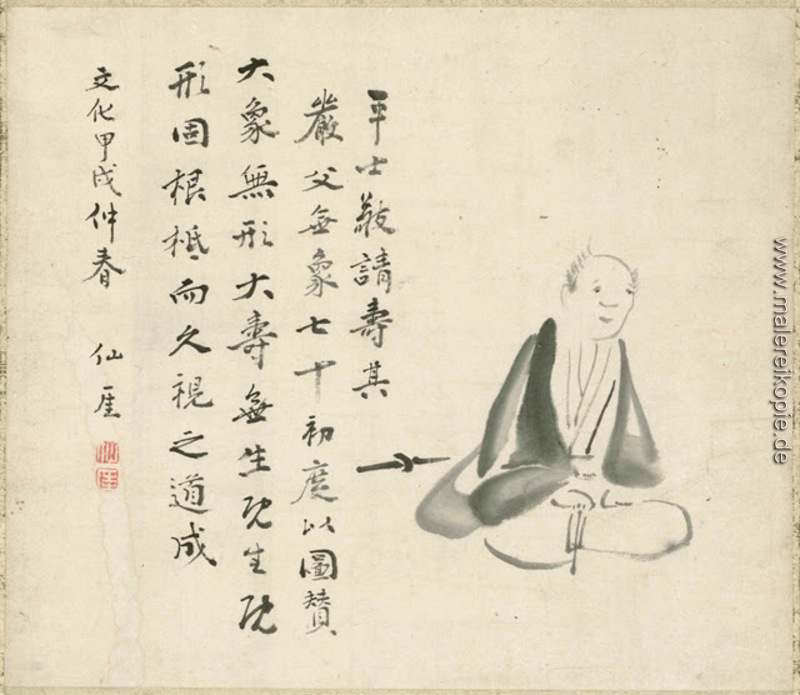 平士敬請壽其
嚴父無象七十初度以圖賛
大象無形大壽無生既生既
形固根柢而久視之道成
文化甲戌仲春
仙厓
仙厓
www.malereikopie.de